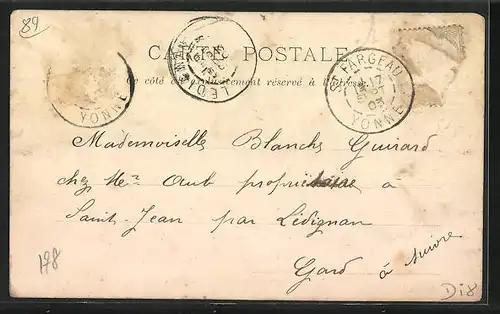 89
CARTE POSTALE
Ce côté est exclusivement réservé à l'adresse
YONNE
LEDIGNAN
ST FARGEAU
17
03
YONNE
Mademoiselle Blanche Guirard
chez Mr Aub propriétaire à
Saint-Jean par Lédignan
Gard
à suivre
178
Di8